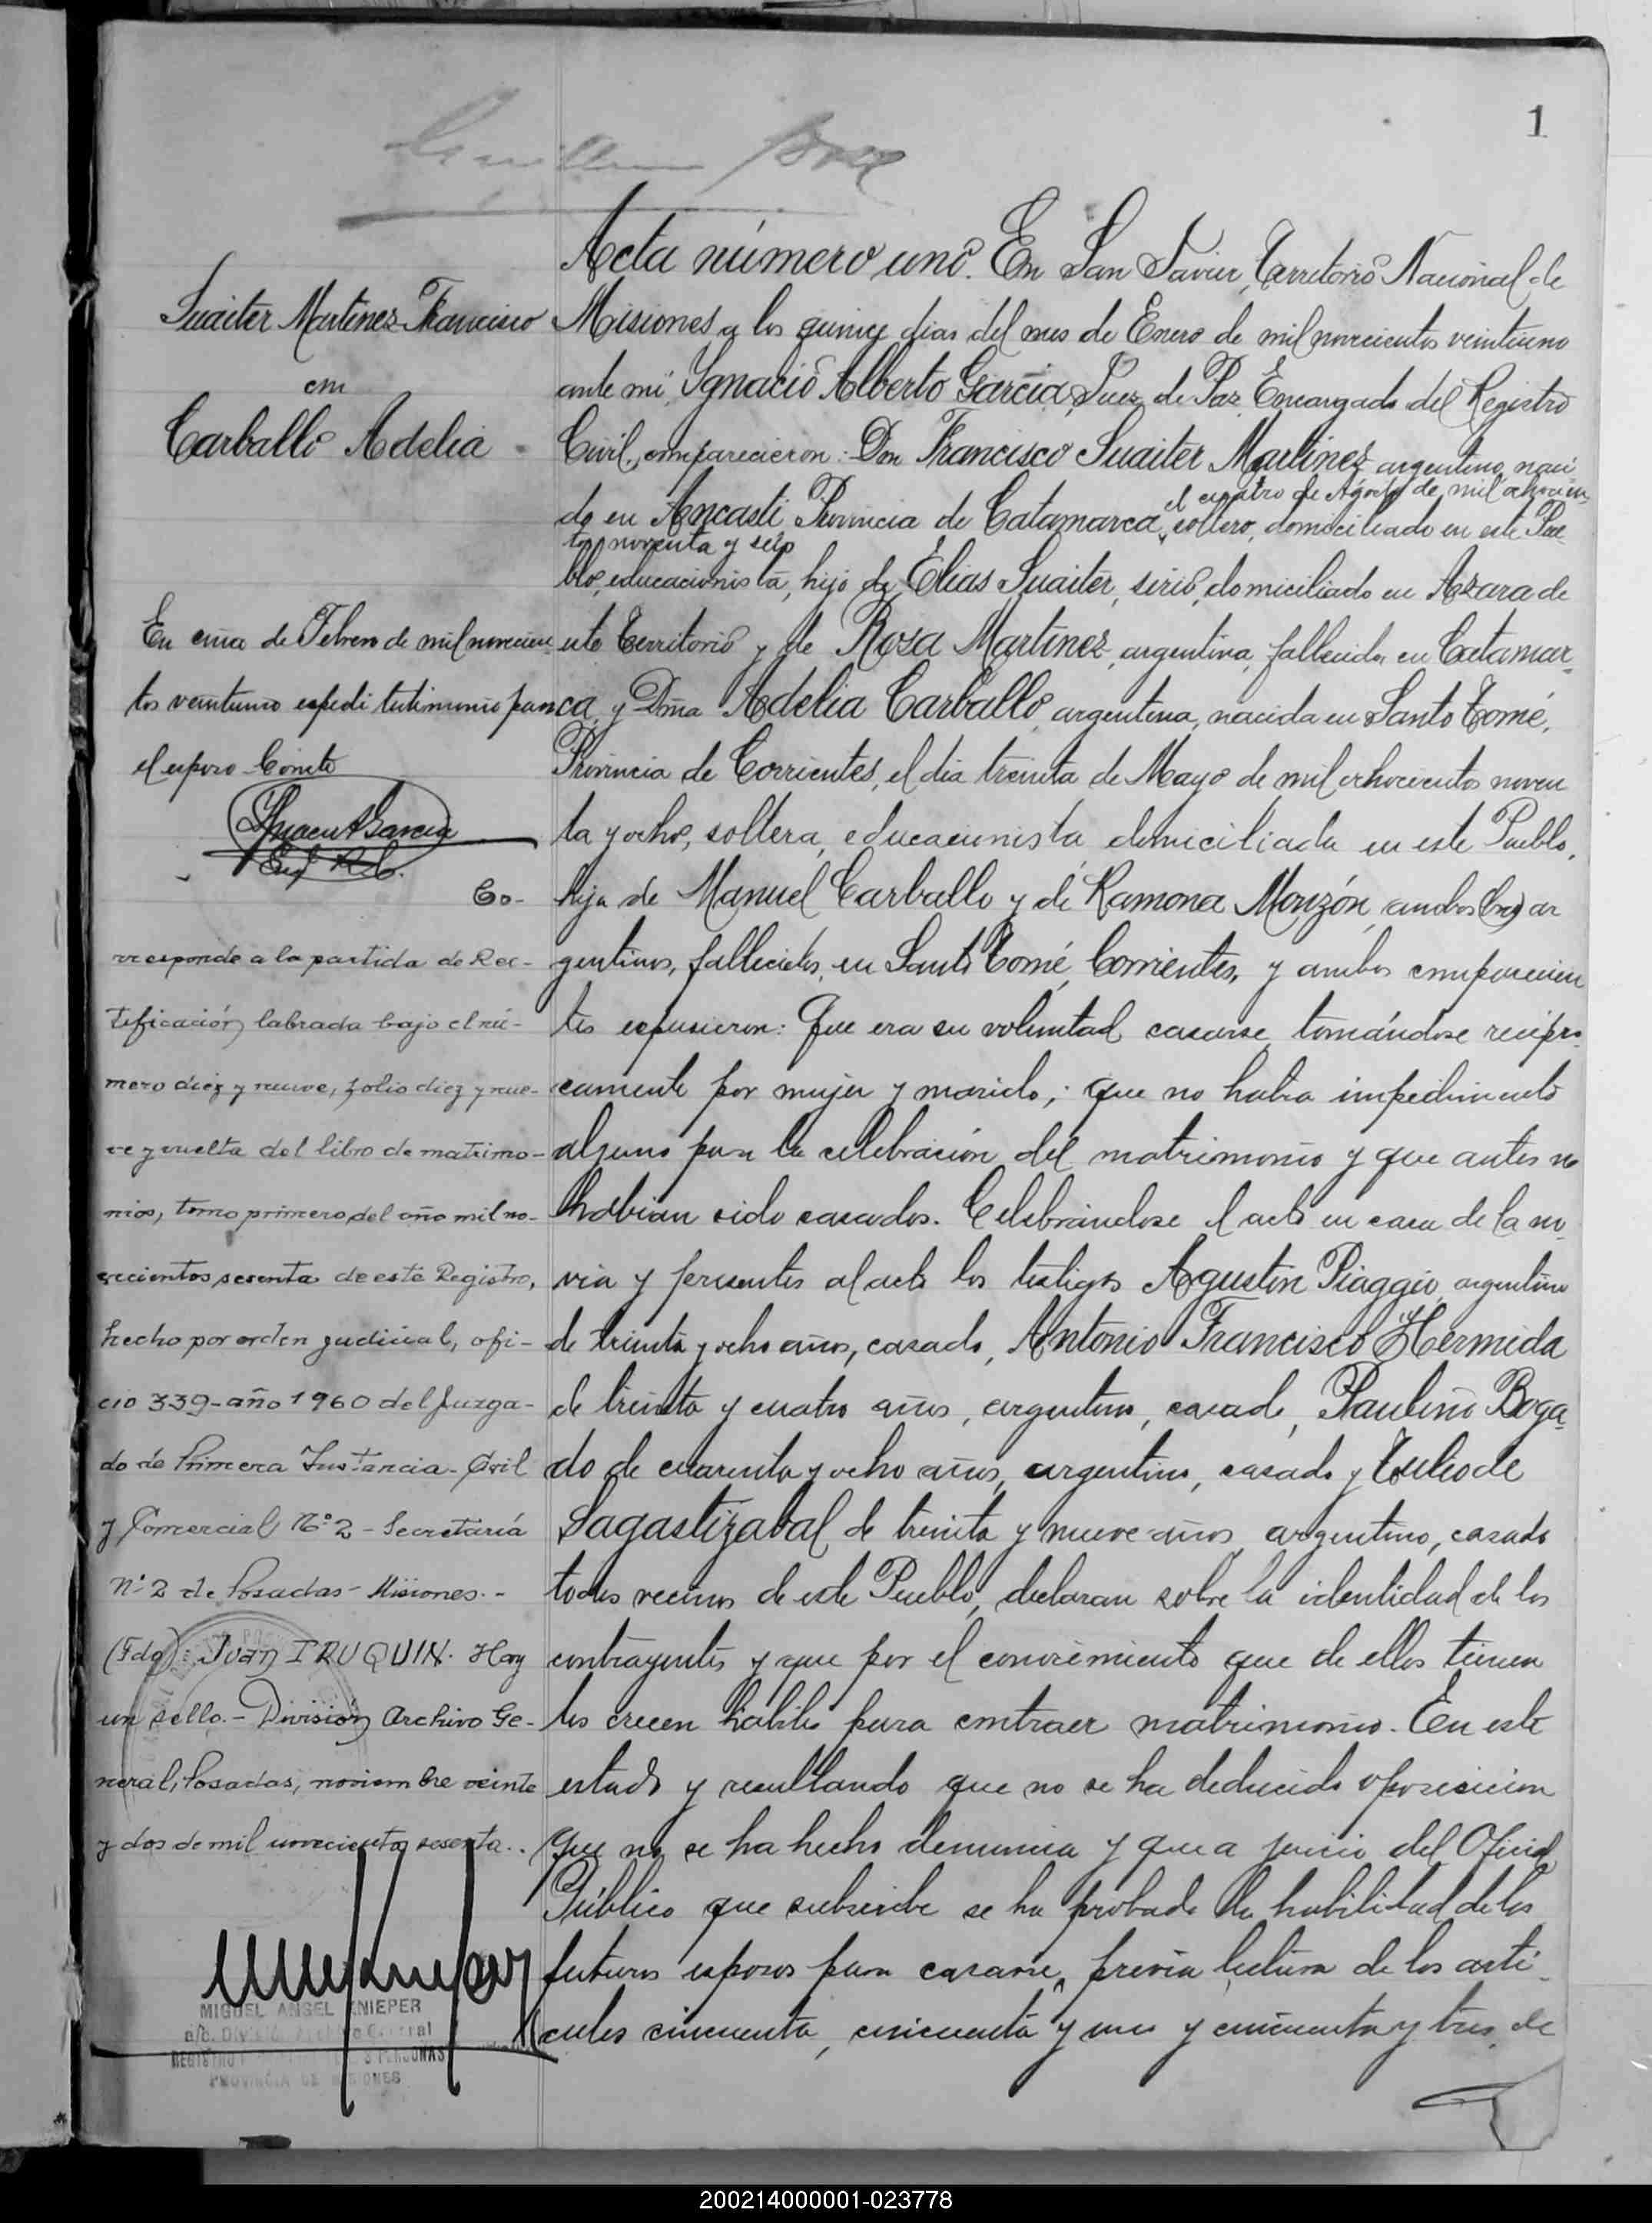 1
Acta número uno. En San Javier, Territorio Nacional de
Misiones, a los quince dias del mes de Enero de mil novecientos veintiuno
ante mi, Ignacio Alberto García, Juez de Paz, Encargado del Registro
Civil, comparecieron: Don Francisco Suaiter Martinez argentino, naci
el cuatro de Agosto de mil ochocien-
do en Ancasti Provincia de Catamarca, soltero, domiciliado en este Pue-
tos noventa y seis
blo, educacionista, hijo de Elias Suaiter, sirio, domiciliado en Azara de
este Territorio y de Rosa Martínez, argentina, fallecida en Catamar-
ca, y Doña Adelia Carballo, argentina, nacida en Santo Tomé,
Provincia de Corrientes, el dia treinta de Mayo de mil ochocientos noven
ta y ocho, soltera, educacionista domiciliada en este Pueblo,
hija de Manuel Carballo y de Ramona Monzón, ambos ar
gentinos, fallecidos, en Santo Tomé, Corrientes, y ambos comparecien
tes expusieron: Que era su voluntad casarse, tomándose recipro
camente por mujer y marido; que no habia impedimento
alguno para la celebración del matrimonio y que antes no
habian sido casados. Celebrándose el acto en casa de la no
via y presentes al acto los testigos Agustin Piaggio, argentino
de treinta y ocho años, casado, Antonio Francisco Hermida
de treinta y cuatro años, argentino, casado, Paulino Boga-
do de cuarenta y ocho años, argentino, casado y Tulio de
Sagastizabal de treinta y nueve años, argentino, casado
todos vecinos de este Pueblo, declaran sobre la identidad de los
contrayentes y que por el conocimiento que de ellos tienen
los creen hábiles para contraer matrimonio. En este
estado y resultando que no se ha deducido oposicion
que no se ha hecho denuncia y que a juicio del Oficial
Público que subscribe se ha probado la habilidad de los
futuros esposos para casarse, previa lectura de los arti-
culos cincuenta, cincuenta y uno y cincuenta y tres de
Suaiter Martinez Francisco
con
Carballo Adelia
En de Febrero de mil novecien
tos veintiuno espedi testimonio para
el esposo Conste
Enc R. C.
Co-
rresponde a la partida de Rec-
tificación, labrada bajo el nú-
mero diez y nueve, folio diez y nue-
ve y vuelta del libro de matrimo-
nios, tomo primero, del año mil no-
vecientos sesenta de este Registro,
hecho por orden judicial, ofi-
cio 339-año 1960 del Juzga-
do de Primera Instancia - Civil
y Comercial N° 2 - Secretaría
N° 2 de Posadas - Misiones.-
(Fdo): Juan IRUQUIN. Hay
un sello. - División Archivo Ge-
neral, Posadas, noviembre veinte
y dos de mil novecientos sesenta..
MIGUEL ANGEL KNIEPER
a/c. División Archivo General
REGISTRO PERSONAS
PROVINCIA DE MISIONES
200214000001-023778